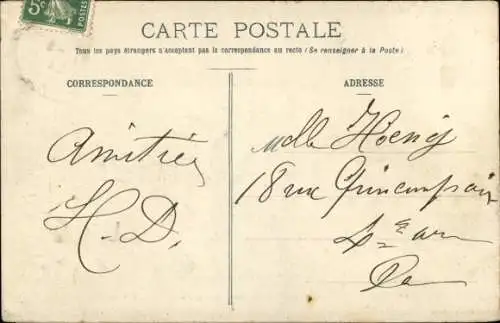 5c
POSTES
CARTE POSTALE
Tous les pays étrangers n'acceptent pas la correspondance au recto (Se renseigner à la Poste)
CORRESPONDANCE
ADRESSE
Amitiés
H. D.
Mdlle Hoenig
18 rue Quincampoix
4e arr